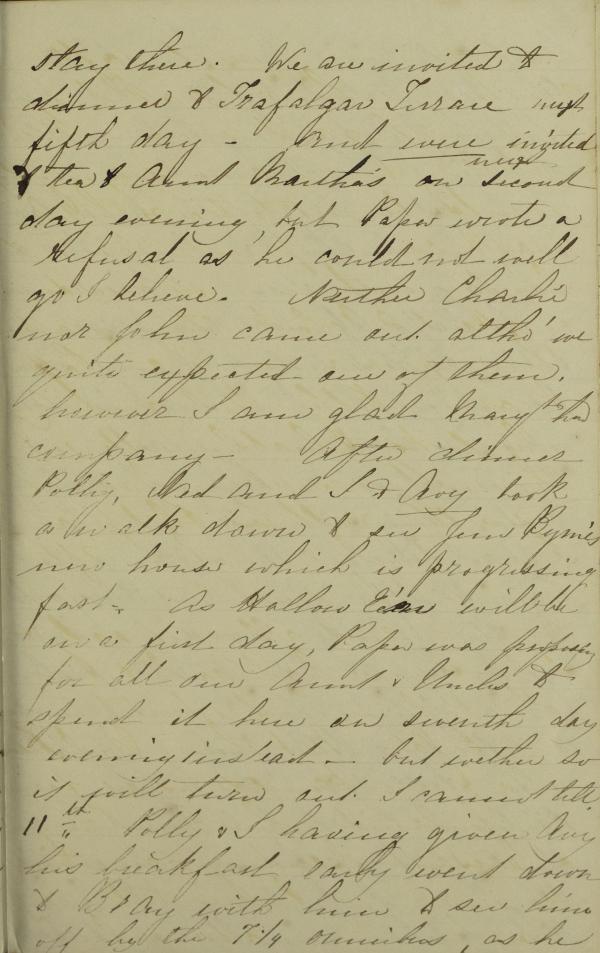 stay there. We are invited to
dinner to Trafalgar Terrace next
fifth day - And were invited
to tea to Aunt Martha's on next second
day evening, but Papa wrote a
refusal as he could not well
go I believe. Neither Charlie
nor John came out altho' we
quite expected one of them.
however I am glad Mary had
company - After dinner
Polly, Ned and I & Avy took
a walk down to see Jem Pym's
new house which is progressing
fast - As Hallow E'en will be
on a first day, Papa was proposing
for all our Aunt & Uncles to
spend it here on seventh day
evening instead - but wether so
it will turn out I cannot tell.
11th Polly & I having given Avy
his breakfast early went down
to Bray with him to see him
off by the 7 1/4 omnibus, as he